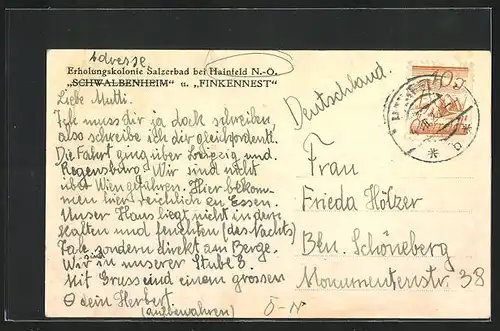 Adresse
Erholungskolonie Salzerbad bei Hainfeld N.-Ö.
„SCHWALBENHEIM" u. „FINKENNEST"
Liebe Mutti.
Ich muss dir ja doch schreiben,
also schreibe ich dir gleich ordentl.
Die Fahrt ging über Leipzig und
Regensburg. Wir sind nicht
über Wien gefahren. Hier bekom-
men wir reichlich zu Essen.
Unser Haus liegt nicht in dem
kalten und feuchten (des Nachts)
Tale, sondern direkt am Berge.
Wir sind in unserer Stube 8.
Mit Gruss und einem grossen
O dein Herbert.
(aufbewahren)
Ö-N
Deutschland.
Frau
Frieda Hölzer
Bln. Schöneberg
Monumentenstr. 38